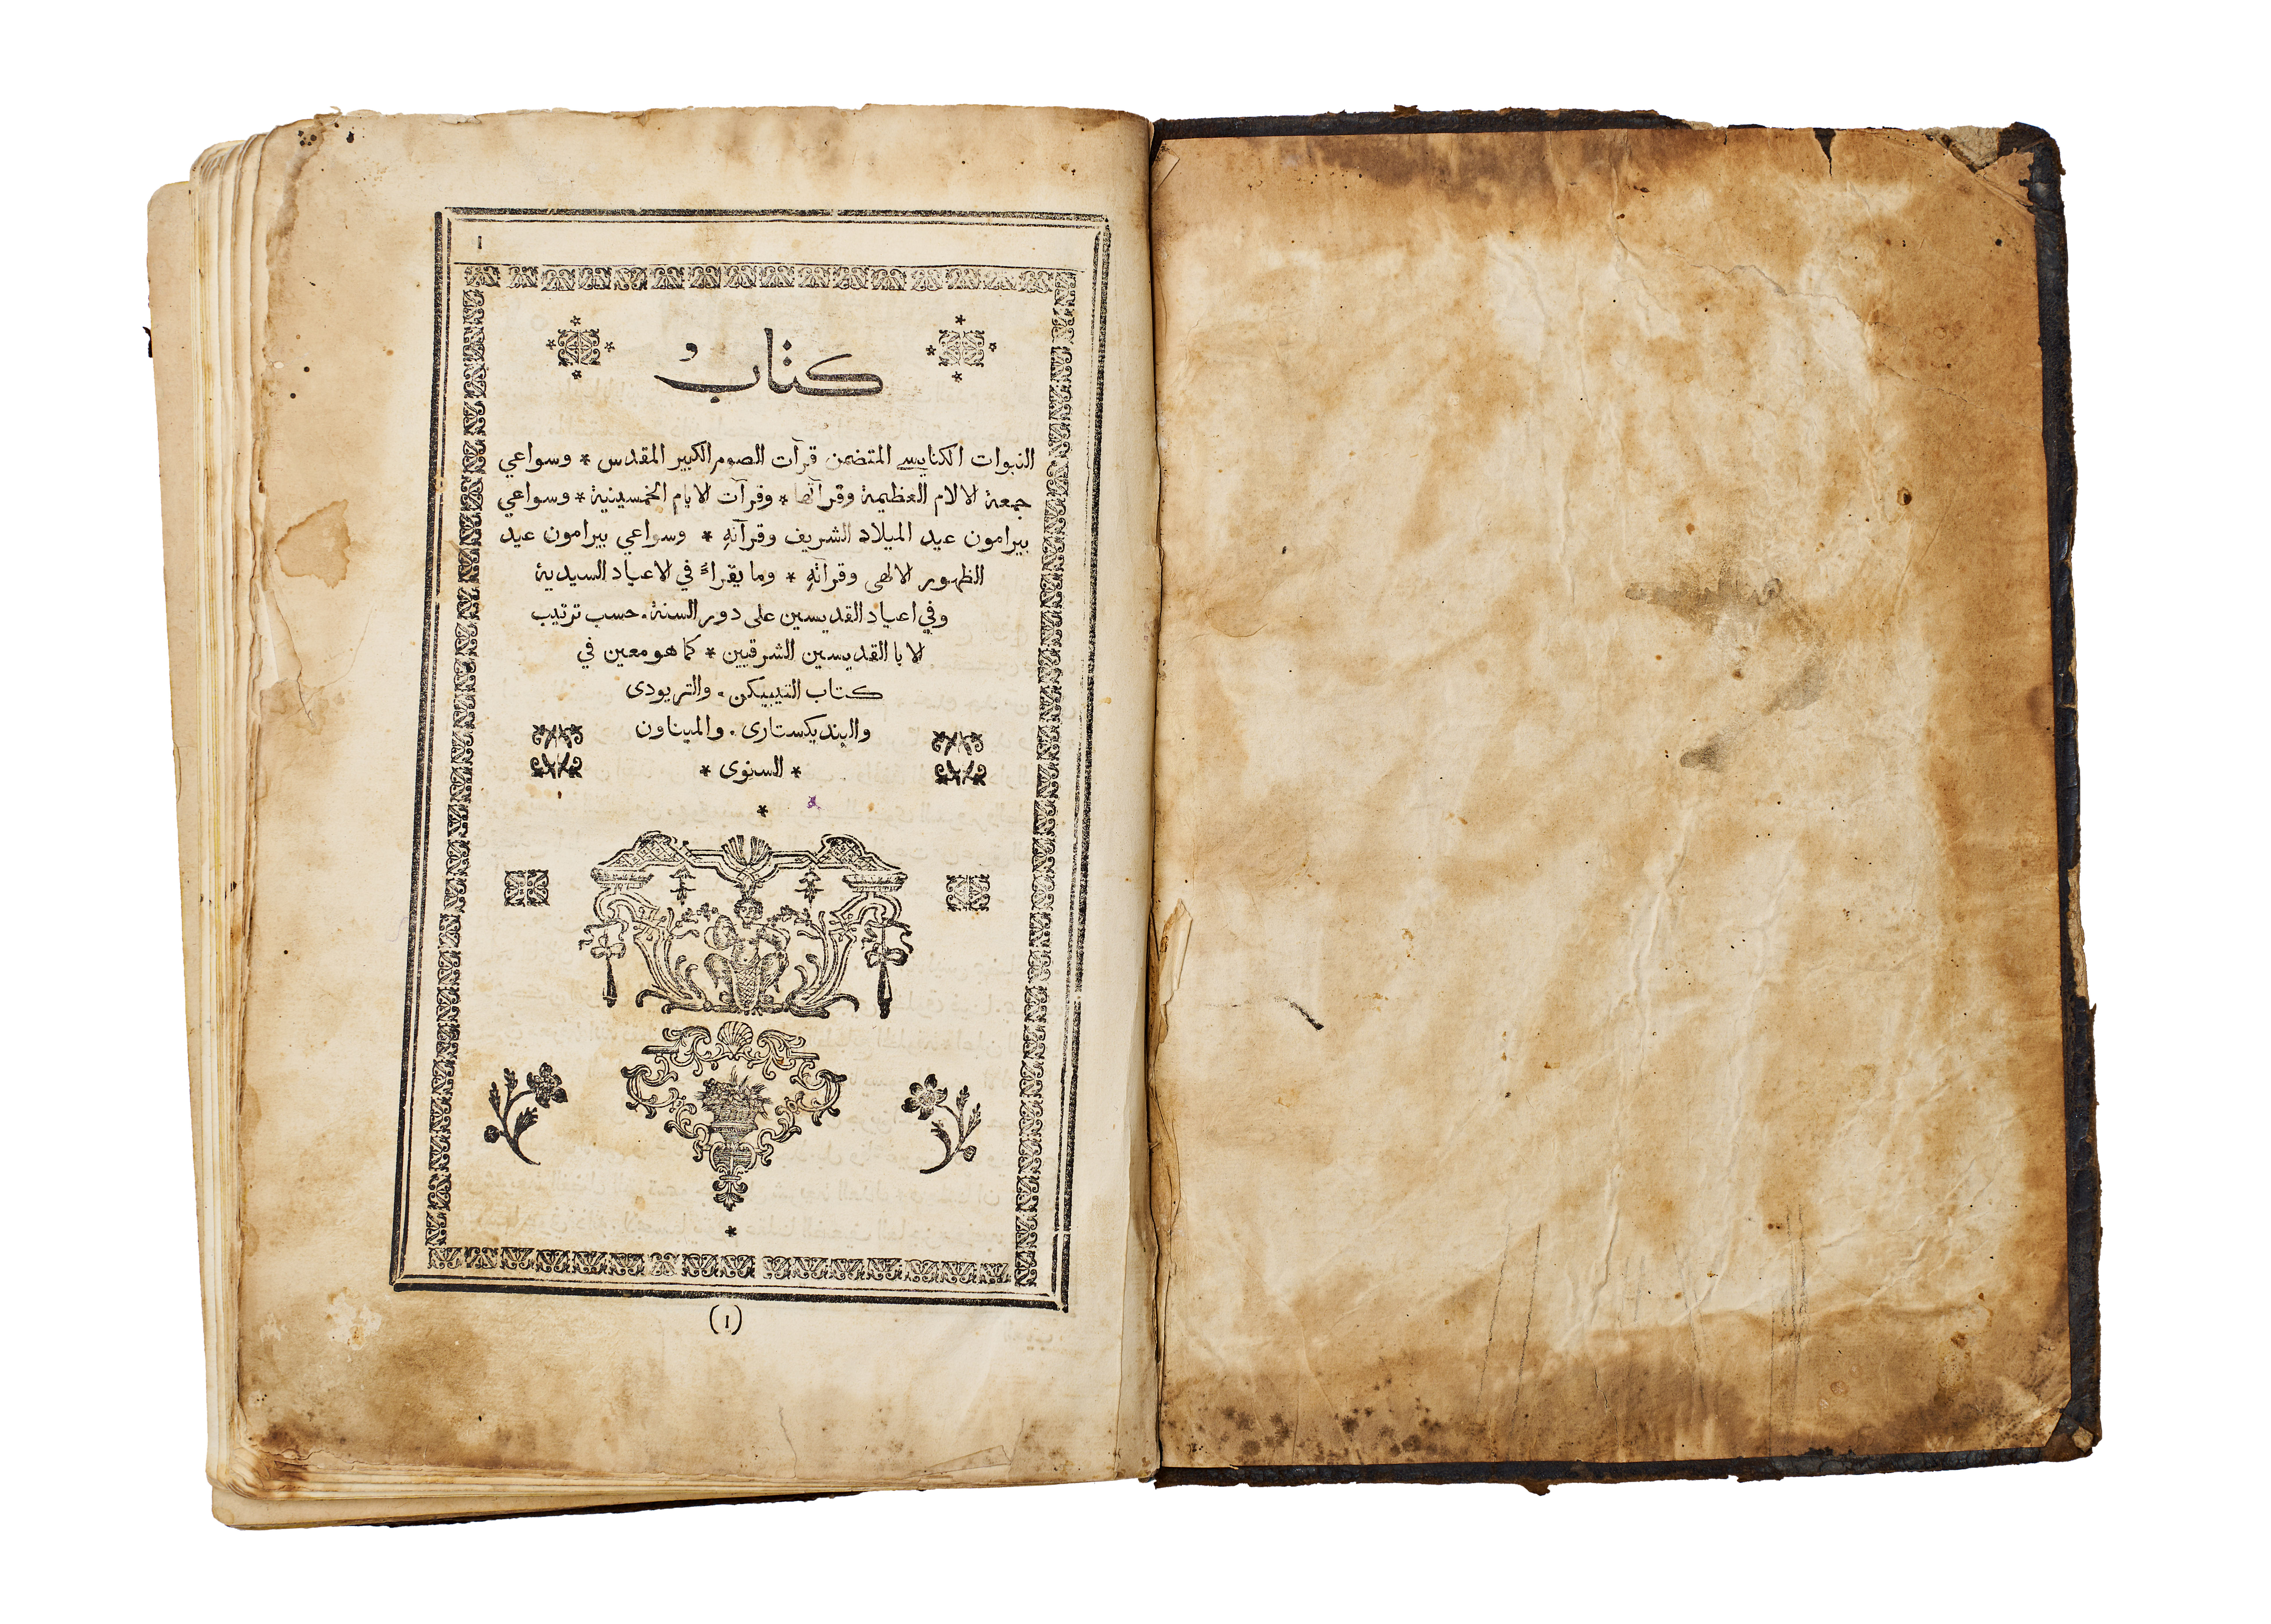 ١
كتاب
النبوات الكنايسي المتضمن قرآت الصوم الكبير المقدس * وسواعي
جمعة الالام العظيمة وقرآتها * وقرآت الايام الخمسينية * وسواعي
بيرامون عيد الميلاد الشريف وقرآته * وسواعي بيرامون عيد
الظهور الالهى وقرآته * وما يقراء في الاعياد السيدية
وفي اعياد القديسين على دور السنة . حسب ترتيب
الابا القديسين الشرقيين * كما هو معين في
كتاب التيبيكن . والتريودى
والپنديكستارى . والميناون
* السنوى *
(١)